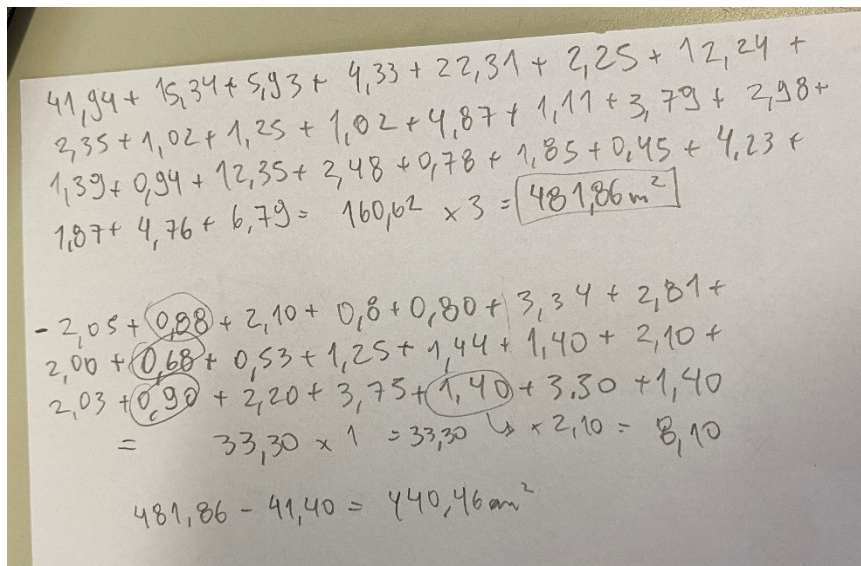 41,94 + 15,34 + 5,93 + 4,33 + 22,31 + 2,25 + 12,24 +
2,35 + 1,02 + 1,25 + 1,02 + 4,87 + 1,11 + 3,79 + 2,98 +
1,39 + 0,94 + 12,35 + 2,48 + 0,78 + 1,85 + 0,45 + 4,23 +
1,87 + 4,76 + 6,79 = 160,62 x 3 = 481,86 m²
- 2,05 + 0,88 + 2,10 + 0,8 + 0,80 + 3,34 + 2,81 +
2,00 + 0,68 + 0,53 + 1,25 + 1,44 + 1,40 + 2,10 +
2,03 + 0,90 + 2,20 + 3,75 + 1,40 + 3.30 + 1,40
= 33,30 x 1 = 33,30 ↳ x 2,10 = 8,10
481,86 - 41,40 = 440,46 m²